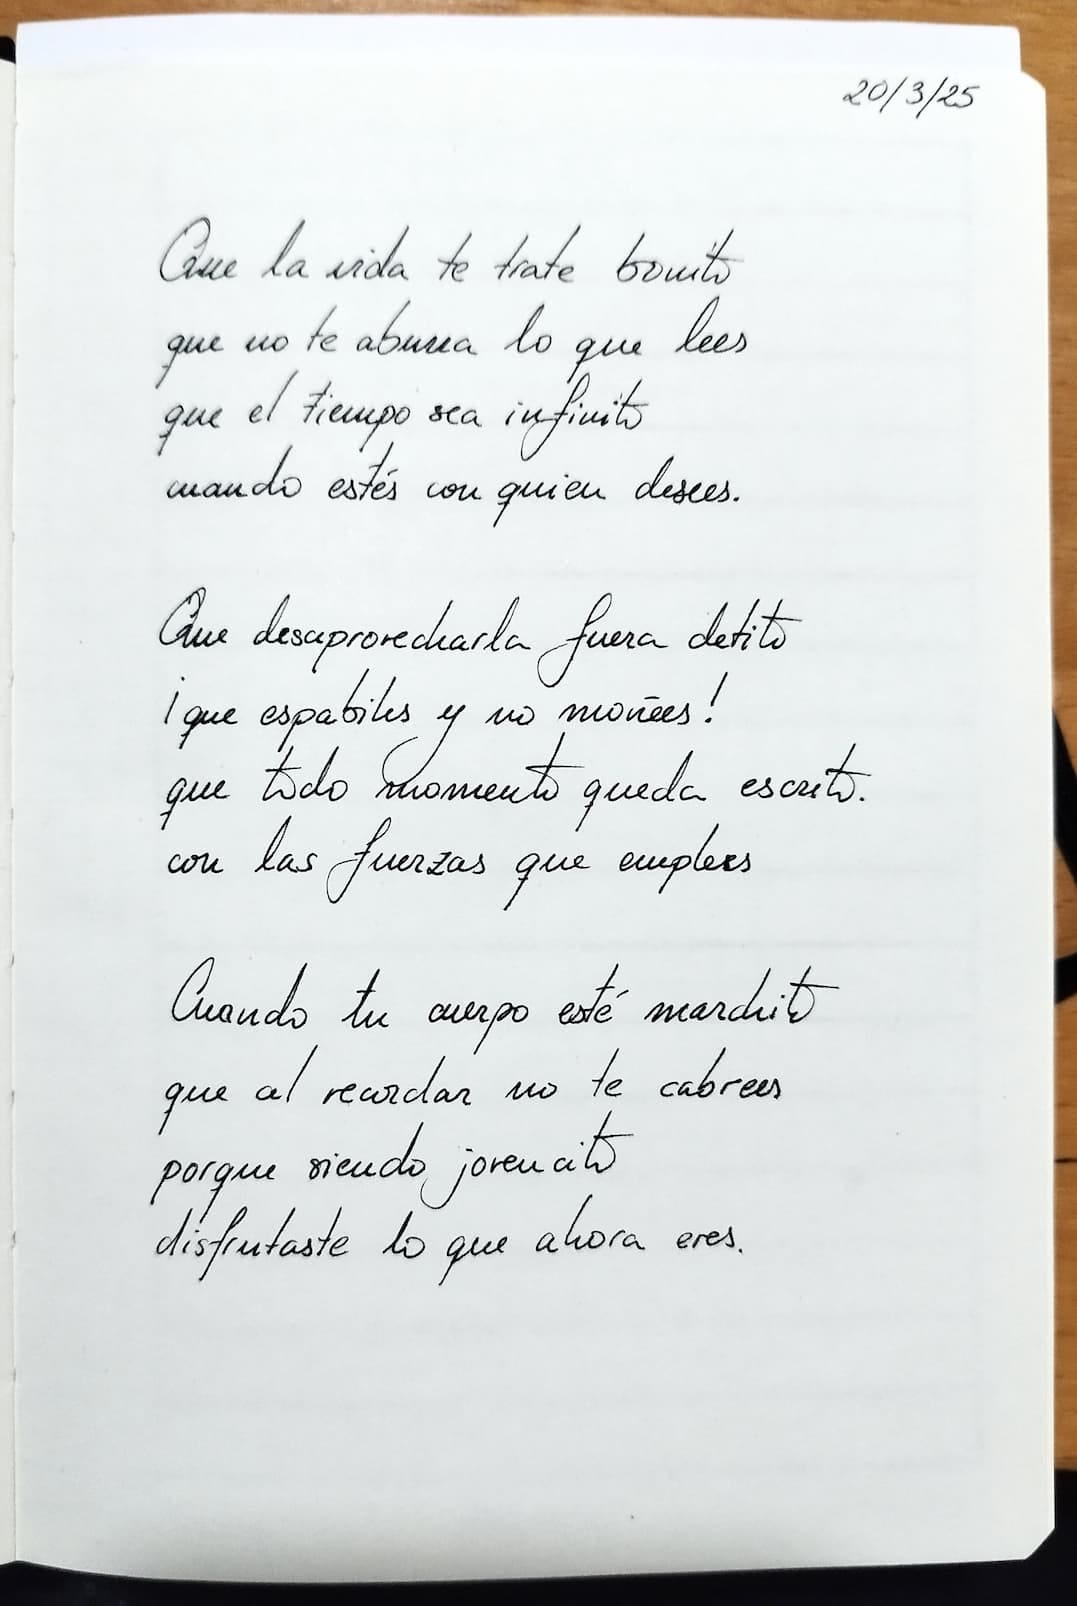 20/3/25
Que la vida te trate bonito
que no te aburra lo que lees
que el tiempo sea infinito
cuando estés con quien desees.
Que desaprovecharla fuera delito
¡que espabiles y no moñees!
que todo momento queda escrito.
con las fuerzas que emplees
Cuando tu cuerpo esté marchito
que al recordar no te cabrees
porque siendo jovencito
disfrutaste lo que ahora eres.